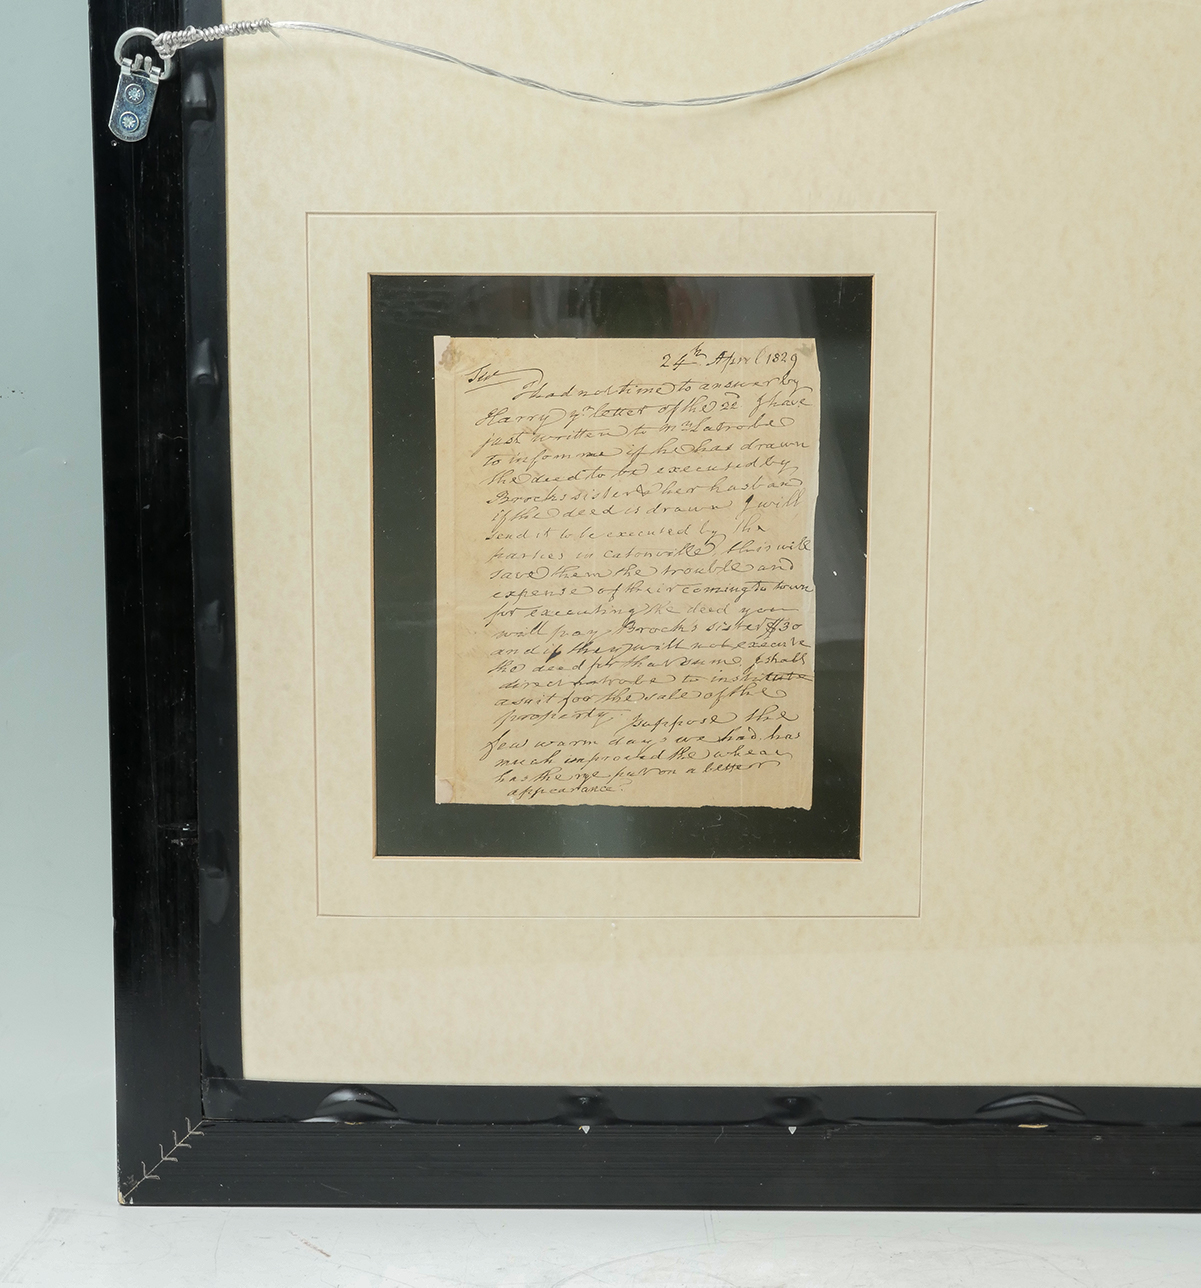 24th April 1829
Sir
I had not time to answer by
Harry yr letter of the 22d I have
just written to Mr Latrobe
to inform me if he has drawn
the deed to be executed by
Brock's sister & her husband
if the deed is drawn I will
send it to be executed by the
parties in Catonville, this will
save them the trouble and
expense of their coming to town
for executing the deed you
will pay Brock's sister $30
and if they will not execute
the deed for that sum, I shall
direct Latrobe to institute
a suit for the sale of the
property. I suppose the
few warm days we had has
much improved the wheat
has the rye put on a better
appearance?